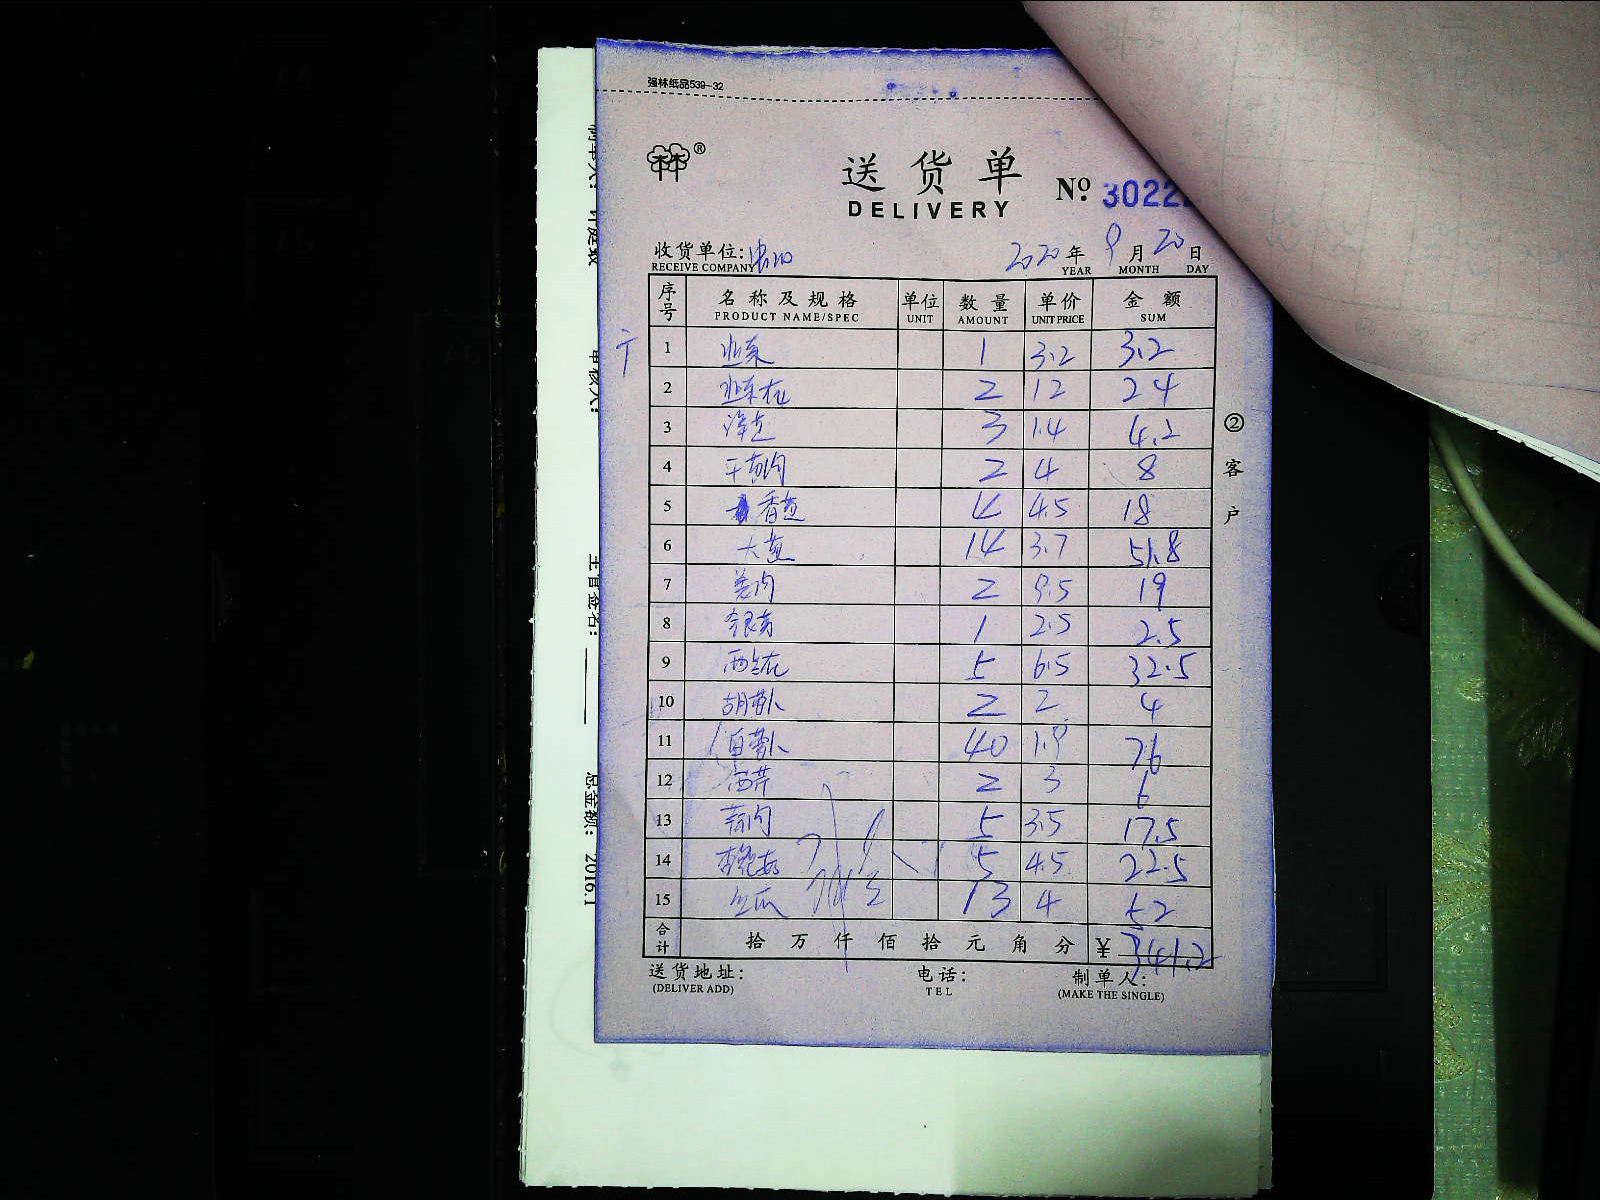 强林纸品539-32
®
送货单
DELIVERY
№ 3022
收货单位:
RECEIVE COMPANY
2020年 9月 20日
YEAR MONTH DAY
序号 名称及规格 单位 数量 单价 金额
PRODUCT NAME/SPEC UNIT AMOUNT UNIT PRICE SUM
1 韭菜 1 3.2 3.2
2 韭菜花 2 12 24
3 洋芋 3 1.4 4.2
4 2 4 8
5 香葱 4 4.5 18
6 大葱 14 3.7 51.8
7 姜肉 2 9.5 19
8 银芽 1 2.5 2.5
9 西兰花 5 6.5 32.5
10 胡萝卜 2 2 4
11 白萝卜 40 1.9 76
12 西芹 2 3 6
13 蒜肉 5 3.5 17.5
14 杏鲍菇 5 4.5 22.5
15 丝瓜 13 4 52
合计 拾 万 仟 佰 拾 元 角 分 ¥ 341.2
送货地址: 电话: 制单人:
(DELIVER ADD) TEL (MAKE THE SINGLE)
②客户
审核人:
主管签名:
总金额: 2016.1